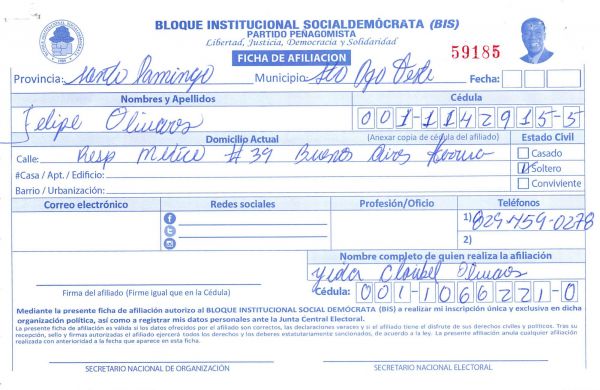 BLOQUE INSTITUCIONAL SOCIALDEMÓCRATA (BIS)
PARTIDO PEÑAGOMISTA
Libertad, Justicia, Democracia y Solidaridad
FICHA DE AFILIACION
59185
Provincia: Santo Domingo Municipio: Sto Dgo Oeste Fecha:
Nombres y Apellidos Cédula
Felipe Olivares 001-1142915-5
Domicilio Actual (Anexar copia de cédula del afiliado) Estado Civil
Calle: Resp # 39 Buenos Aires Casado
#Casa / Apt. / Edificio: Soltero
Barrio / Urbanización: Conviviente
Correo electrónico Redes sociales Profesión/Oficio Teléfonos
1) 829-459-0278
2)
Nombre completo de quien realiza la afiliación
Olivares
Firma del afiliado (Firme igual que en la Cédula) Cédula: 001-1066221-0
Mediante la presente ficha de afiliación autorizo al BLOQUE INSTITUCIONAL SOCIAL DEMÓCRATA (BIS) a realizar mi inscripción única y exclusiva en dicha
organización política, así como a registrar mis datos personales ante la Junta Central Electoral.
La presente ficha de afiliación es válida si los datos ofrecidos por el afiliado son correctos, las declaraciones veraces y si el afiliado tiene el disfrute de sus derechos civiles y políticos. Tras su
recepción, sello y firmas autorizadas el afiliado ejercerá todos los derechos y los deberes estatutariamente sancionados, de acuerdo a la ley. La presente afiliación anula cualquier afiliación
realizada con anterioridad a la fecha que aparece en esta ficha.
SECRETARIO NACIONAL DE ORGANIZACIÓN SECRETARIO NACIONAL ELECTORAL